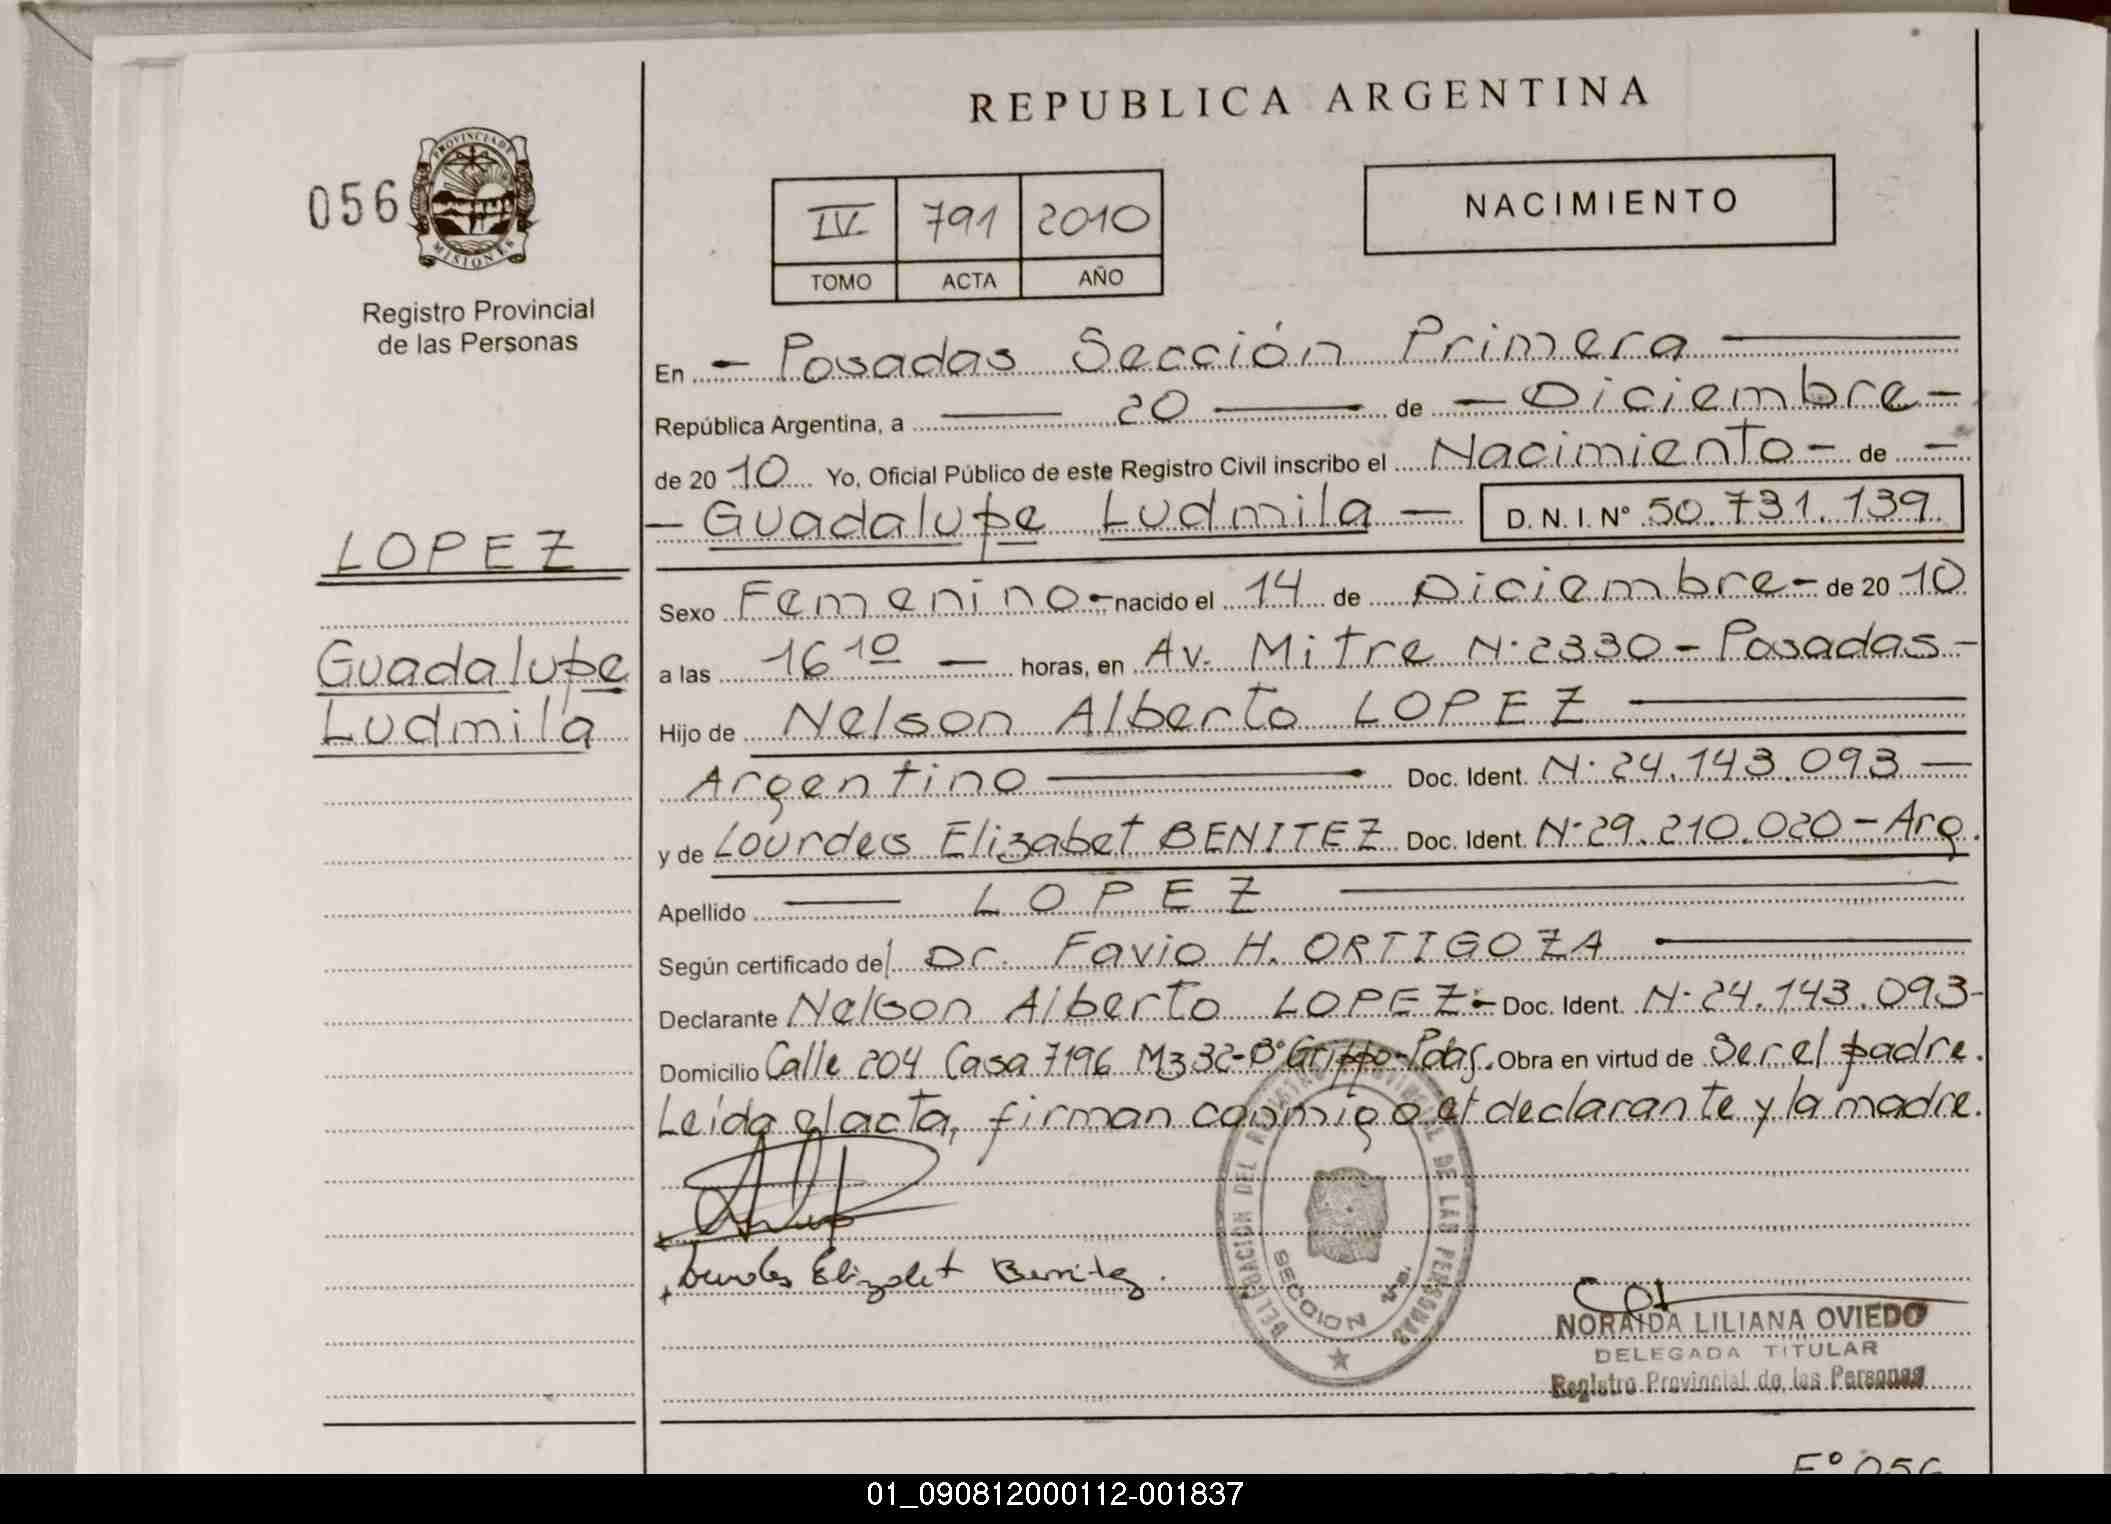 REPUBLICA ARGENTINA
056
PROVINCIA DE MISIONES
Registro Provincial
de las Personas
IV 791 2010
TOMO ACTA AÑO
NACIMIENTO
En - Posadas Sección Primera
República Argentina, a 20 de - Diciembre -
de 2010 Yo, Oficial Público de este Registro Civil inscribo el Nacimiento - de -
- Guadalupe Ludmila - D. N. I. Nº 50.731.139
LOPEZ
Guadalupe
Ludmila
Sexo Femenino - nacido el 14 de Diciembre - de 2010
a las 16 10 - horas, en Av. Mitre N° 2330 - Posadas -
Hijo de Nelson Alberto LOPEZ
Argentino Doc. Ident. N° 24.143.093 -
y de Lourdes Elizabet BENITEZ Doc. Ident. N° 29.210.020 - Arg.
Apellido LOPEZ
Según certificado del Dr. Favio H. ORTIGOZA
Declarante Nelson Alberto LOPEZ - Doc. Ident. N° 24.143.093 -
Domicilio Calle 204 Casa 7196 Mz 32 - B° Grippo - Pdas. Obra en virtud de Ser el padre.
Leída el acta, firman conmigo el declarante y la madre.
Lourdes Elizabet Benitez.
DELEGACION DEL REGISTRO PROVINCIAL DE LAS PERSONAS
SECCION 1ra.
NORAIDA LILIANA OVIEDO
DELEGADA TITULAR
Registro Provincial de las Personas
F° 056
01_090812000112-001837